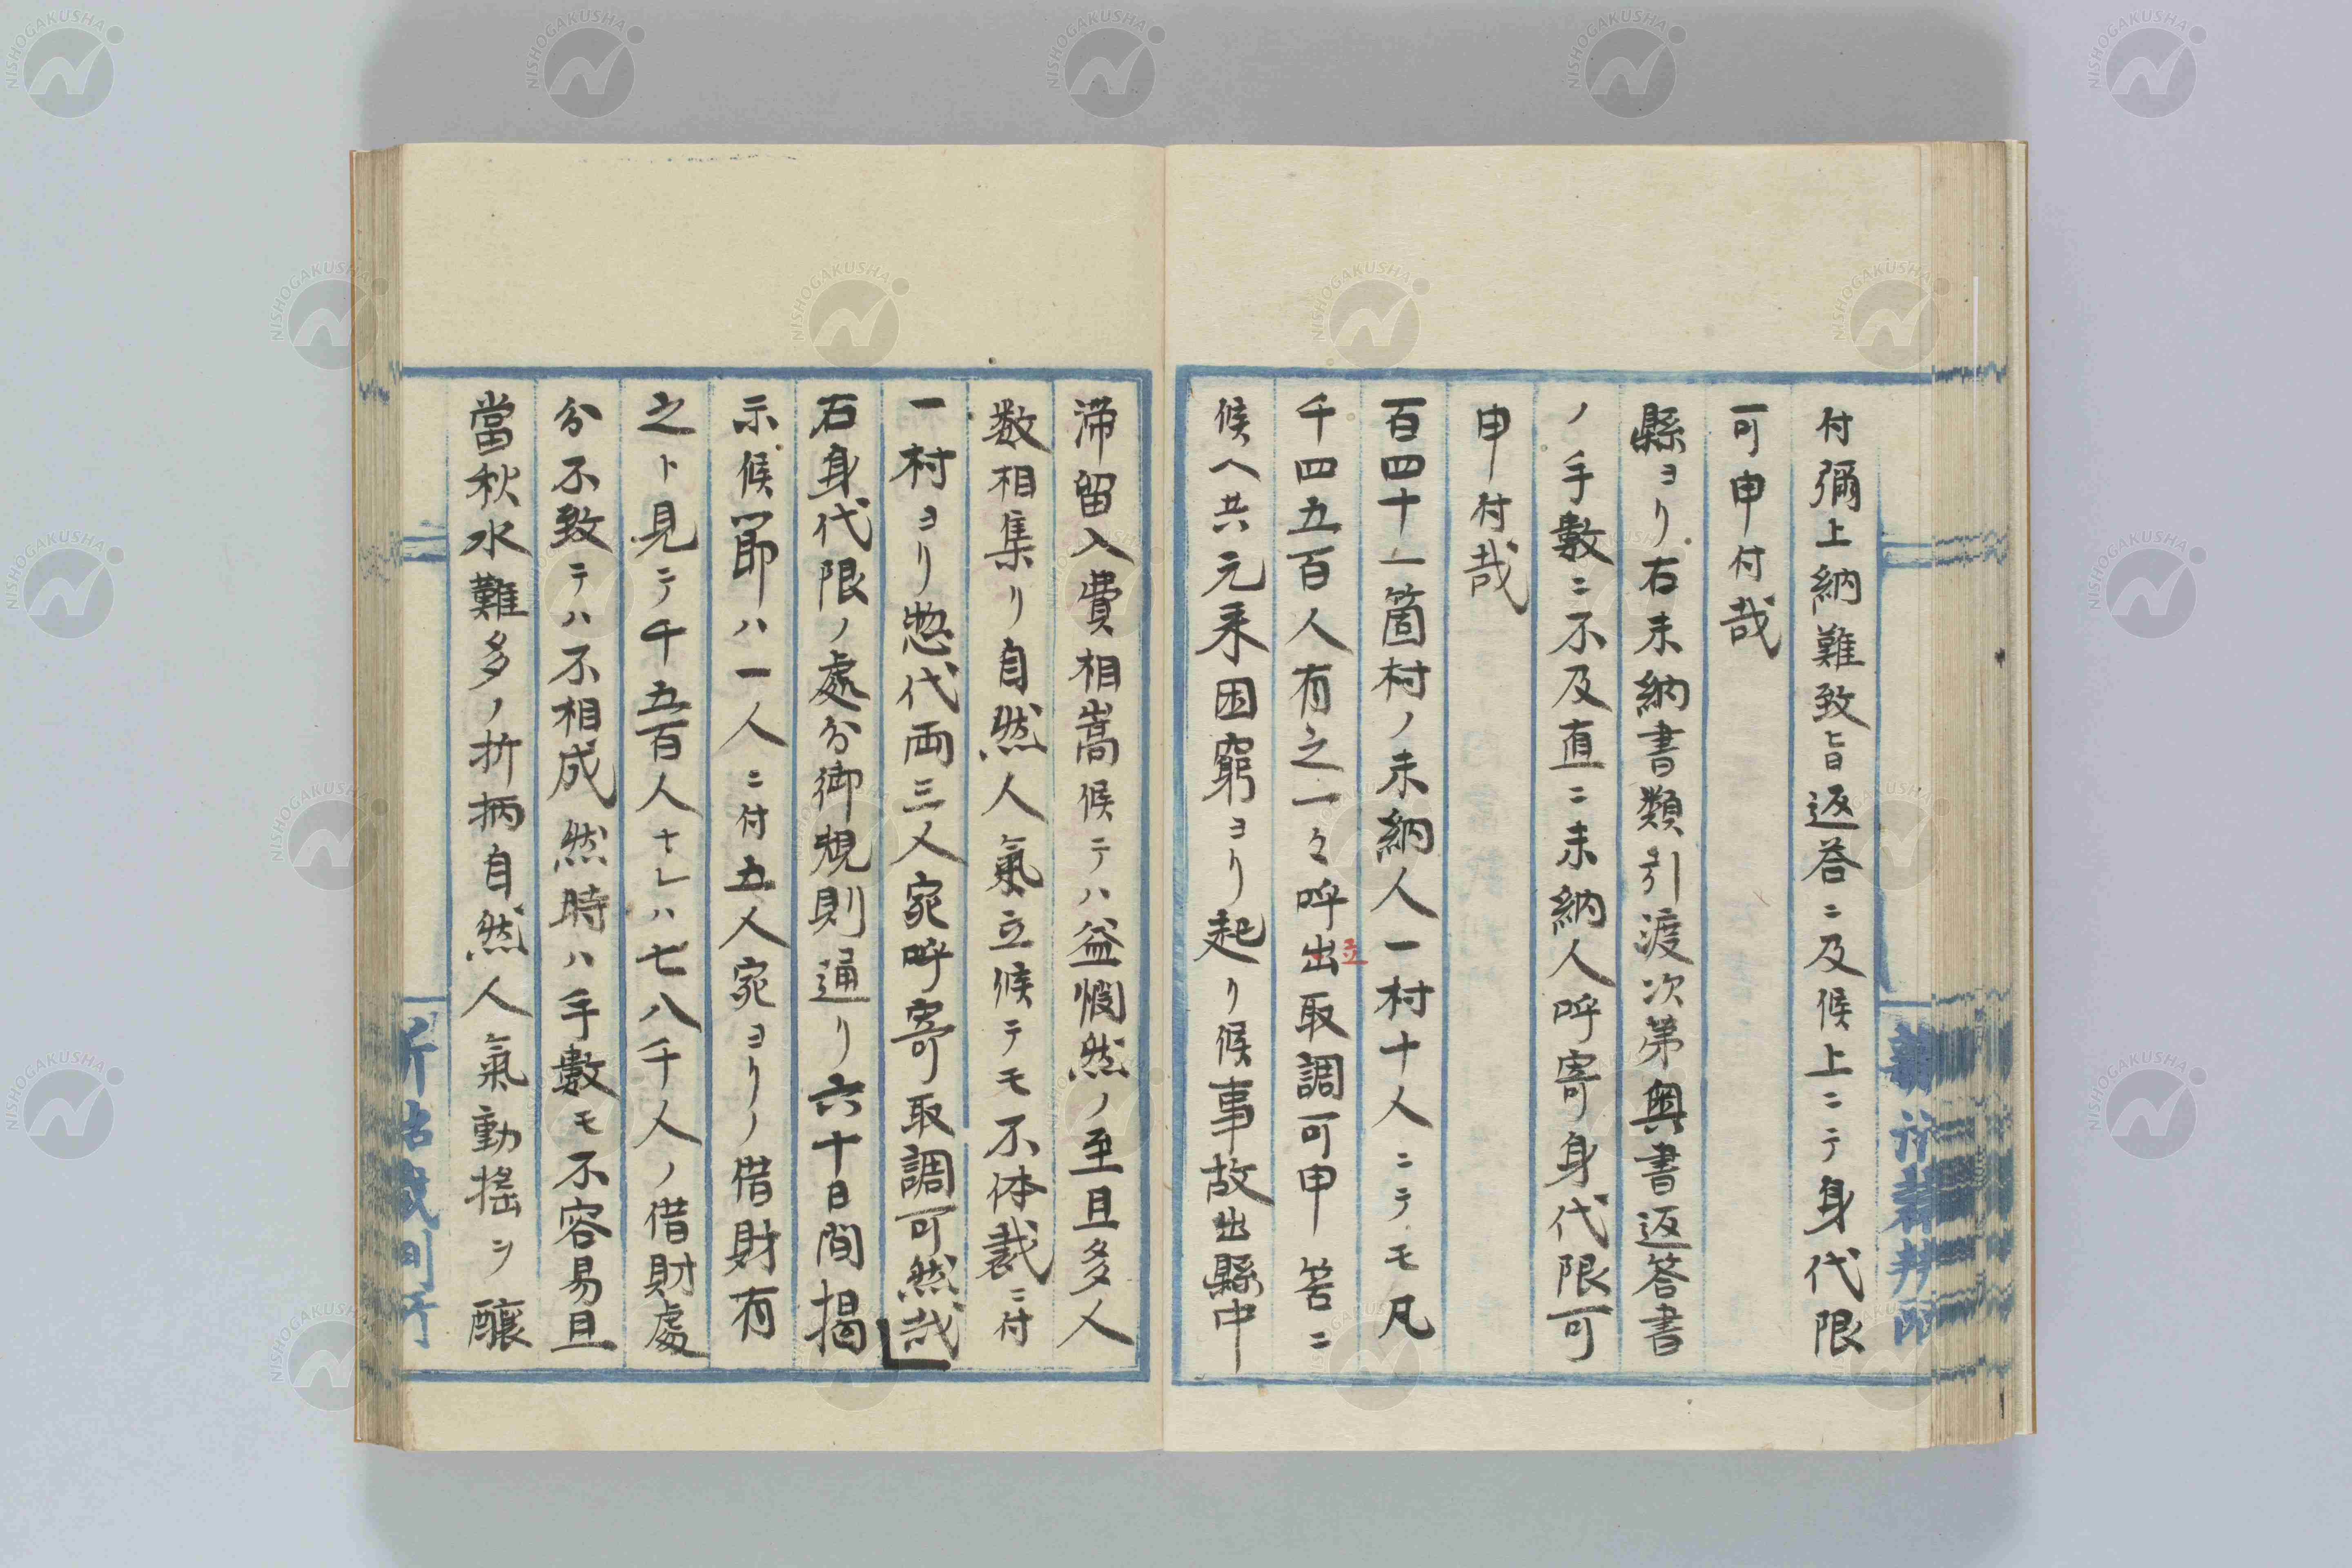 付彌上納難致旨返答ニ及候上ニテ身代限
可申付哉
縣ヨリ右未納書類引渡次第奧書返答書
ノ手數ニ不及直ニ未納人呼寄身代限可
申付哉
百四十一箇村ノ未納人一村十人ニテモ凡
千四五百人有之一々呼出取調可申筈ニ
候ヘ共元来困窮ヨリ起リ候事故出縣中
滞留入費相嵩候テハ益憫然ノ至且多人
数相集リ自然人氣立候テモ不体裁ニ付
一村ヨリ惣代両三人宛呼寄取調可然哉
右身代限ノ處分御規則通リ六十日間掲
示候節ハ一人ニ付五人宛ヨリノ借財有
之ト見テ千五百人ナレハ七八千人ノ借財處
分不致テハ不相成然時ハ手數モ不容易且
當秋水難多ノ折柄自然人氣動揺ヲ醸
NISHOGAKUSHA